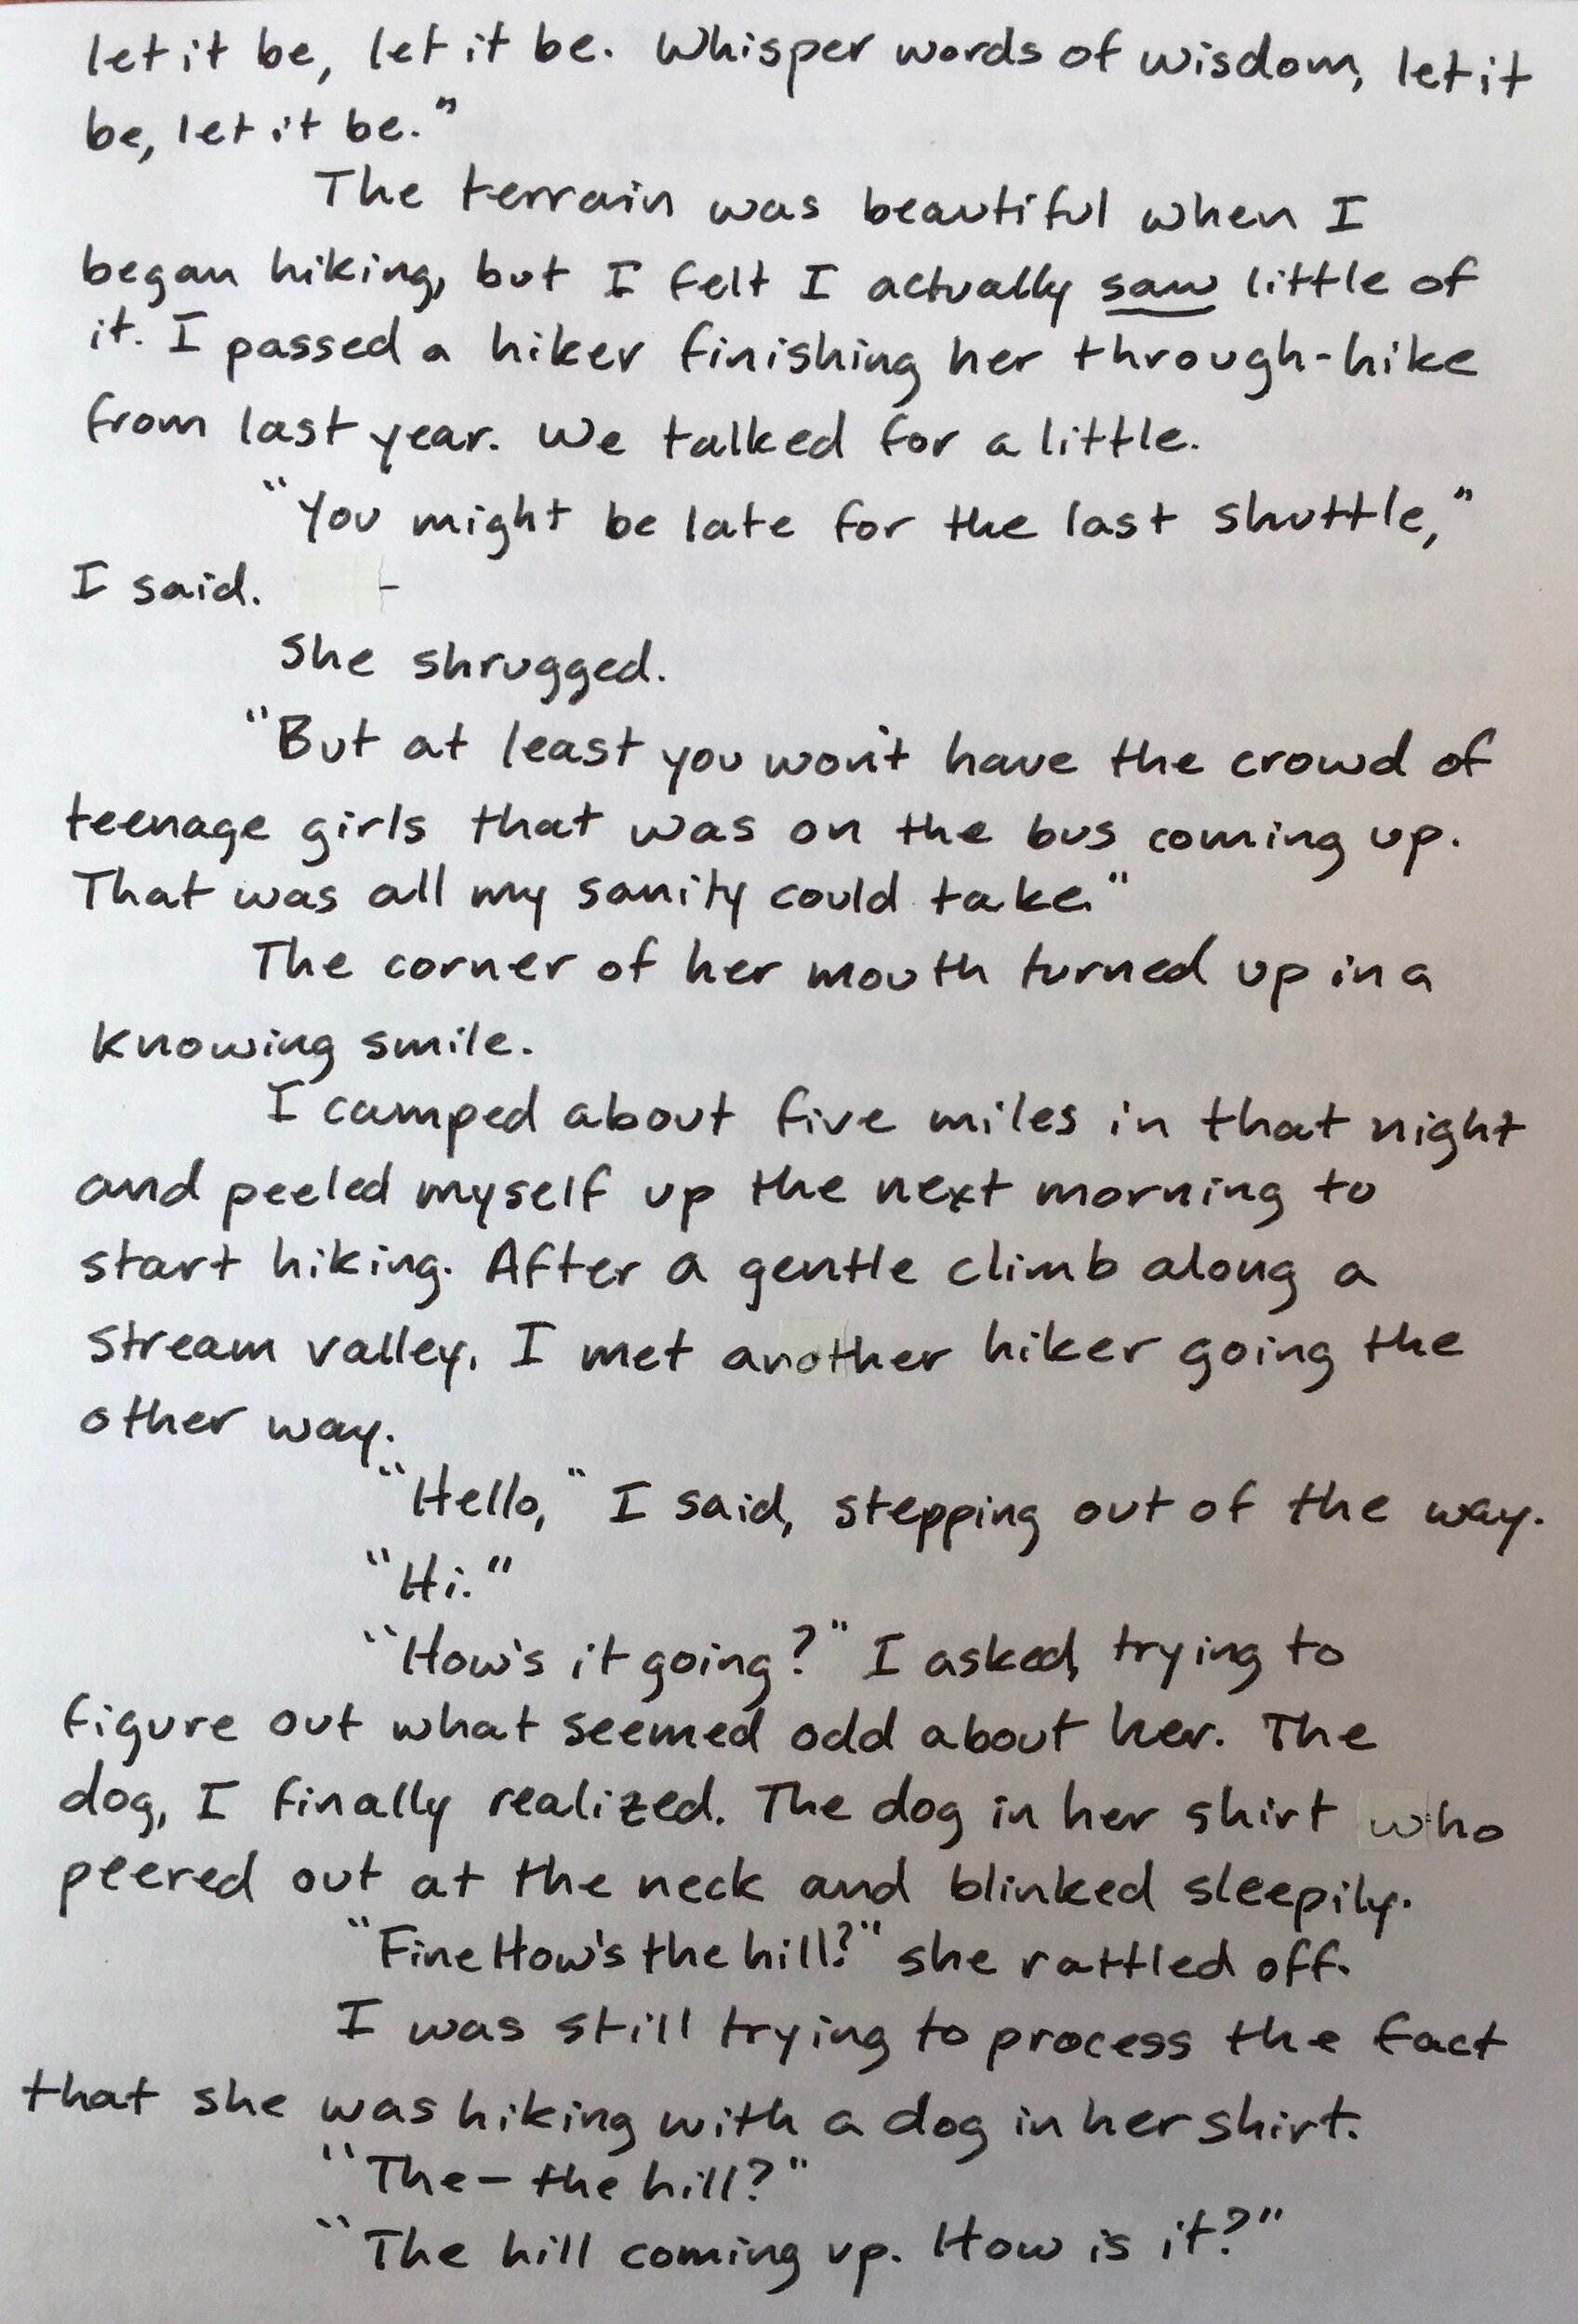 let it be, let it be. Whisper words of wisdom, let it
be, let it be."
The terrain was beautiful when I
began hiking, but I felt I actually saw little of
it. I passed a hiker finishing her through-hike
from last year. We talked for a little.
"You might be late for the last shuttle,"
I said. -
She shrugged.
"But at least you won't have the crowd of
teenage girls that was on the bus coming up.
That was all my sanity could take."
The corner of her mouth turned up in a
knowing smile.
I camped about five miles in that night
and peeled myself up the next morning to
start hiking. After a gentle climb along a
stream valley, I met another hiker going the
other way.
"Hello," I said, stepping out of the way.
"Hi."
"How's it going?" I asked, trying to
figure out what seemed odd about her. The
dog, I finally realized. The dog in her shirt who
peered out at the neck and blinked sleepily.
"FineHow's the hill?" she rattled off.
I was still trying to process the fact
that she was hiking with a dog in her shirt.
"The - the hill?"
"The hill coming up. How is it?"